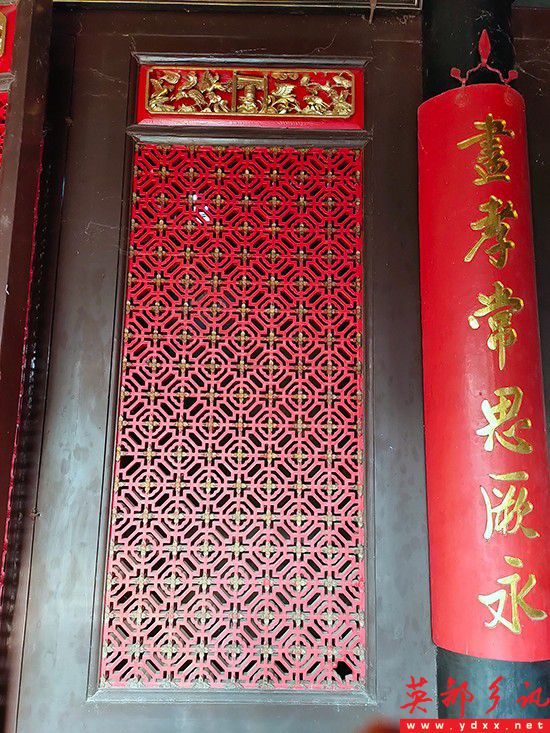 畫孝常思厥永
英都乡讯
www.ydxx.net